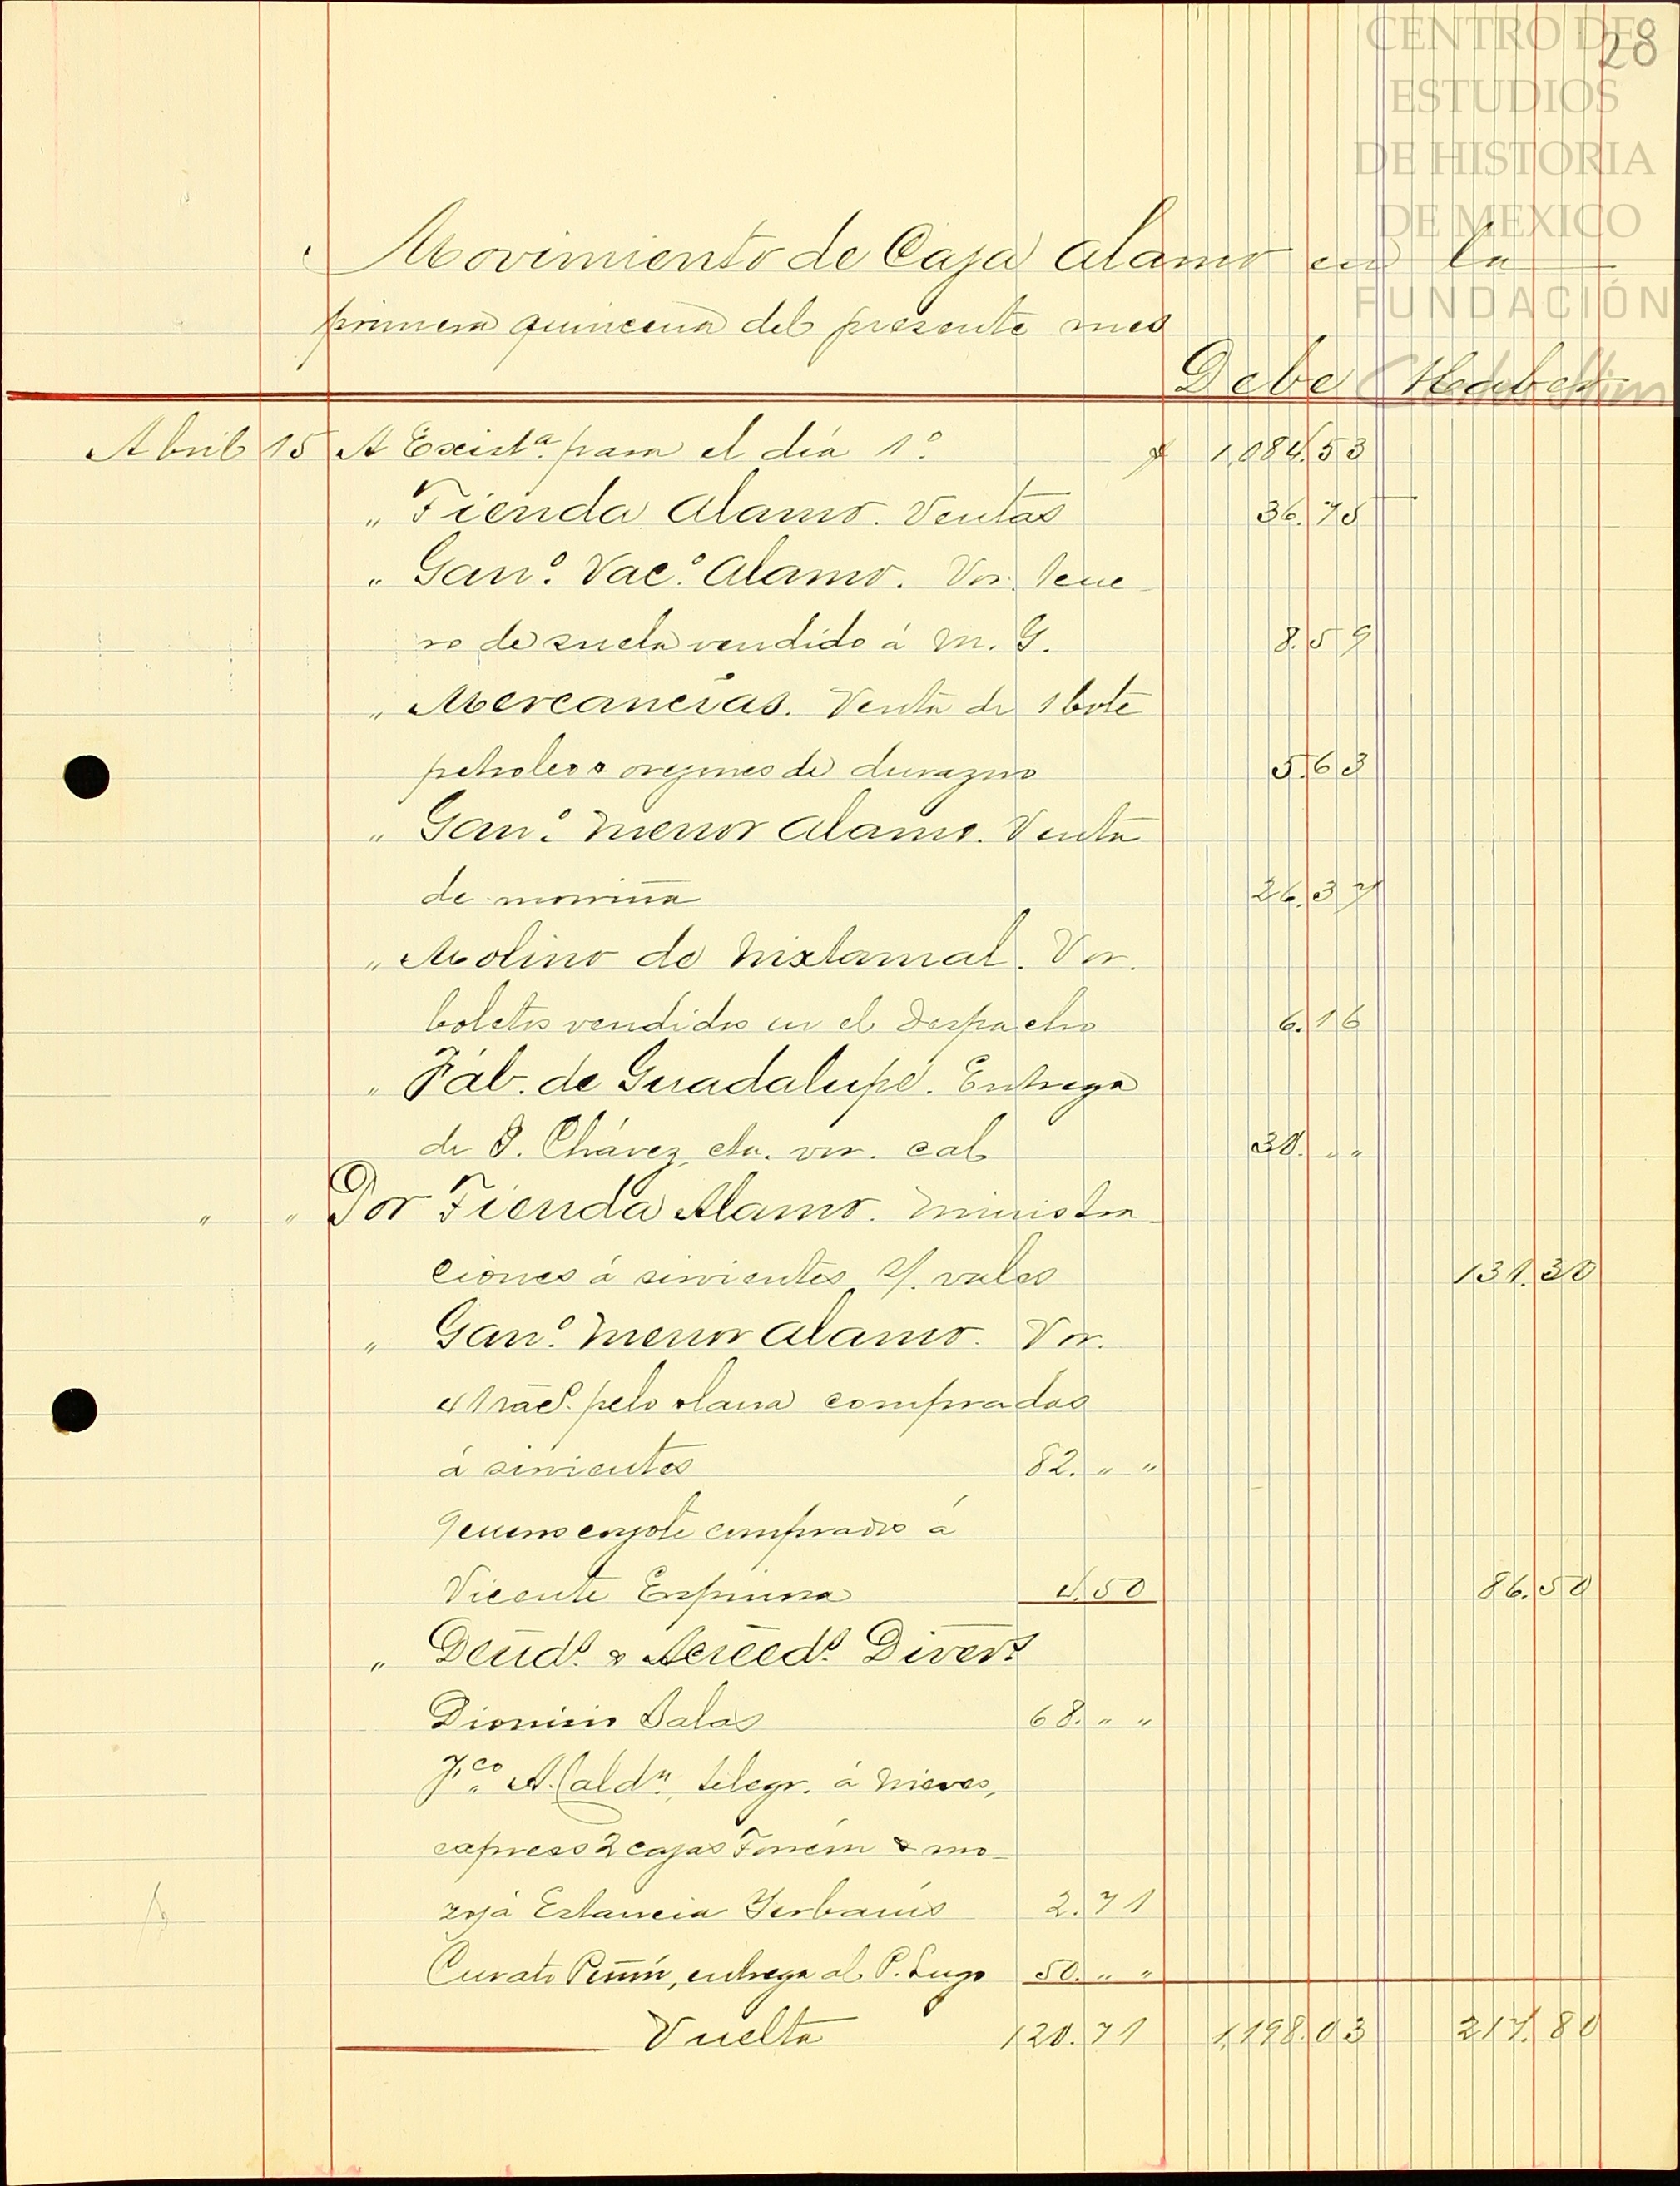 28
CENTRO DE
ESTUDIOS
DE HISTORIA
DE MEXICO
FUNDACIÓN
Movimiento de Caja Alamo en la
primera quincena del presente mes
Debe Haber
Abril 15 A Exist.ª para el día 1º $ 1,084.53
" Tienda Alamo. Ventas 36.75
" Gan.º Vac.º Alamo. Vor. 1 cue
ro de suela vendido á M. G. 8.59
" Mercancías. Venta de 1 bote
petroleo & orejones de durazno 5.63
" Gan.º Menor Alamo. Venta
de morriña 26.37
" Molino de Nixtamal. Vor.
boletos vendidos en el Despacho 6.16
" Fáb. de Guadalupe. Entrega
de Chávez, cta. vor. cal 30. " "
" " Por Tienda Alamo. Ministra
ciones á sirvientes s/. vales 131.30
" Gan.º Menor Alamo. Vor.
pelo & lana comprados
á sirvientes 82. " "
coyote comprado á
Vicente Espinosa 4.50 86.50
" Deud.s & Acreed.s Divers.
Dionicio Salas 68. " "
F.co A. Cald.n, telegr. á Nieves,
express 2 cajas & mo
zo á Estancia Yerbanis 2.71
Curato Peñón, entrega al P. Lugo 50. " "
Vuelta 120.71 1,198.03 217.80